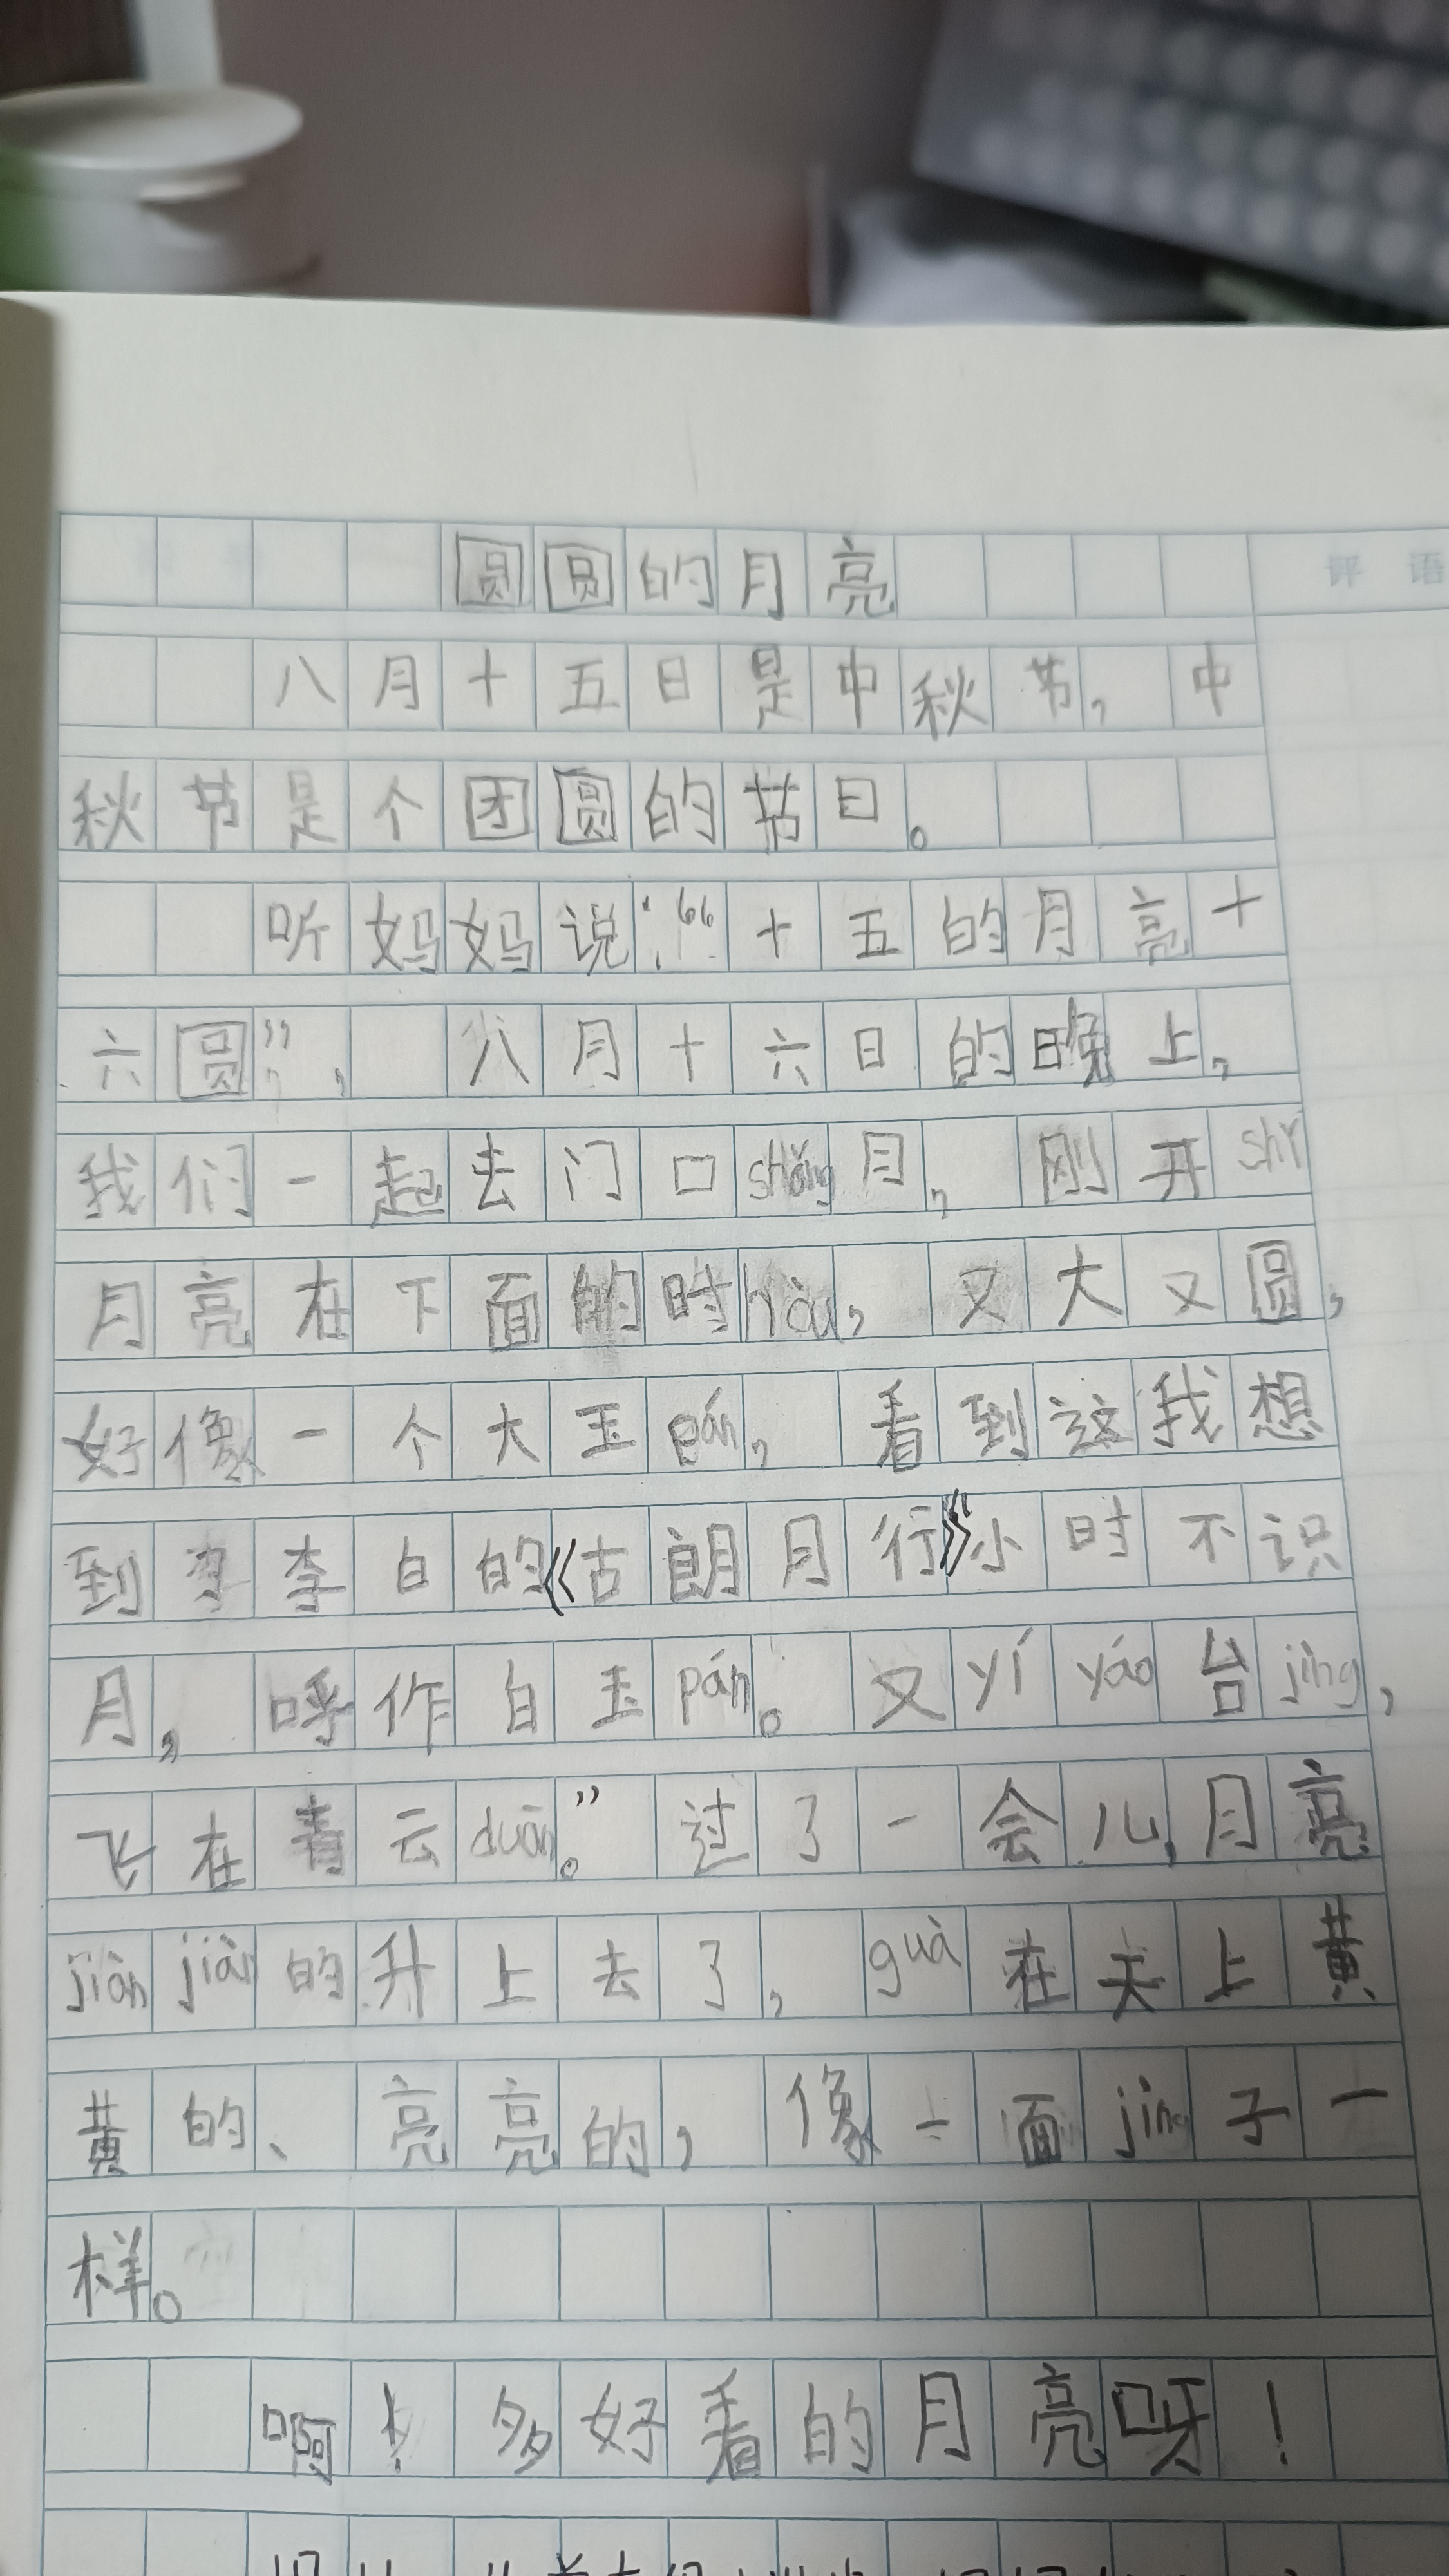 圆圆的月亮
评 语
八月十五日是中秋节，中
秋节是个团圆的节日。
听妈妈说：“十五的月亮十
六圆”，八月十六日的晚上，
我们一起去门口shǎng月，刚开shǐ
月亮在下面的时hòu，又大又圆，
好像一个大玉pán，看到这我想
到李李白的《古朗月行》“小时不识
月，呼作白玉pán。又yí yáo台jìng，
飞在青云duān。”过了一会儿，月亮
jiàn jiàn的升上去了，guà在天上黄
黄的、亮亮的，像一面jìng子一
样。
啊！多好看的月亮呀！